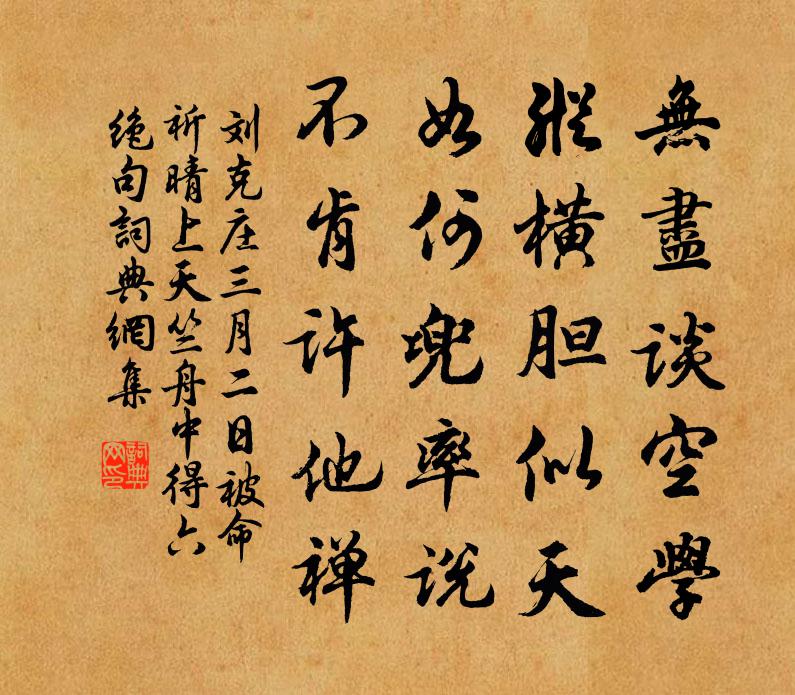 無盡談空學
縱橫胆似天
如何兜率説
不肯许他禅
刘克庄三月二日被命
祈晴上天竺舟中得六
绝句詞典網集
詞典
网印